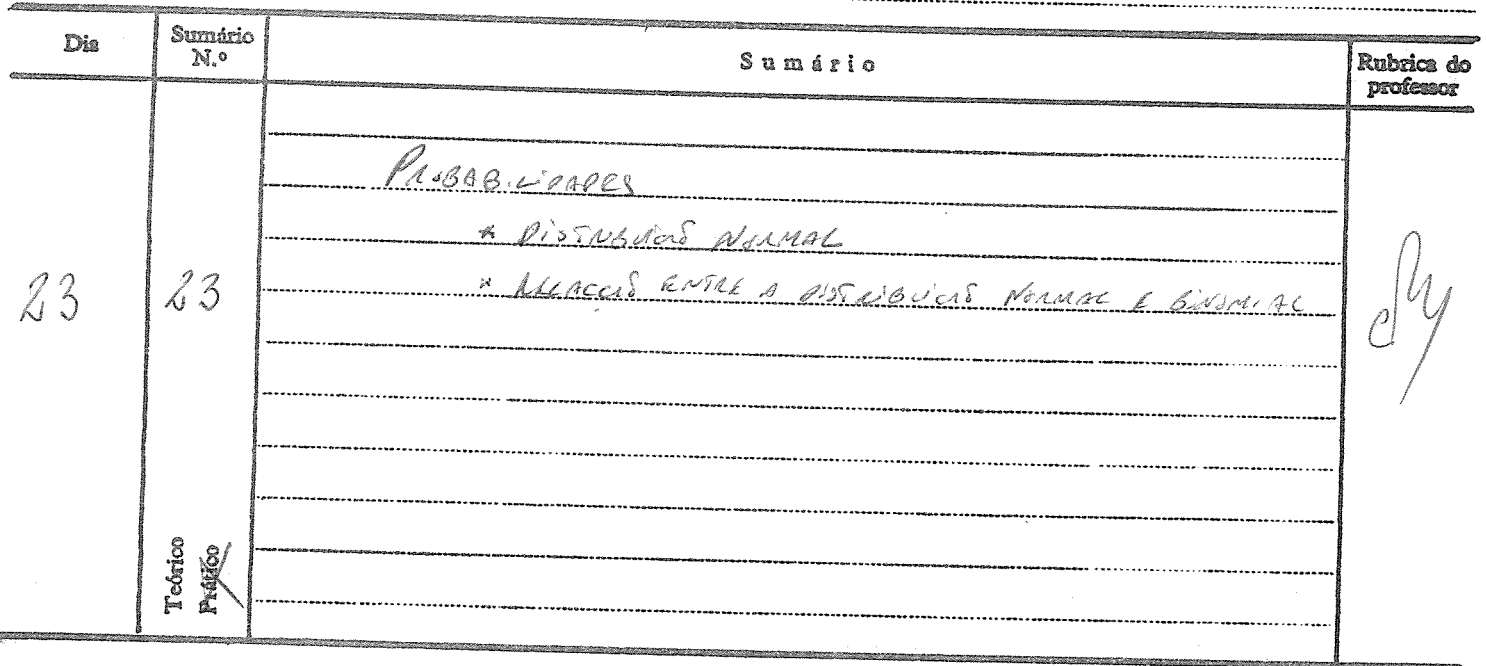 Dia
Sumário N.º
Sumário
Rubrica do professor
PROBABILIDADES
* DISTRIBUIÇÃO NORMAL
* RELAÇÇÃO ENTRE A DISTRIBUIÇÃO NORMAL E BINOMIAL
23
23
Teórico
Prático